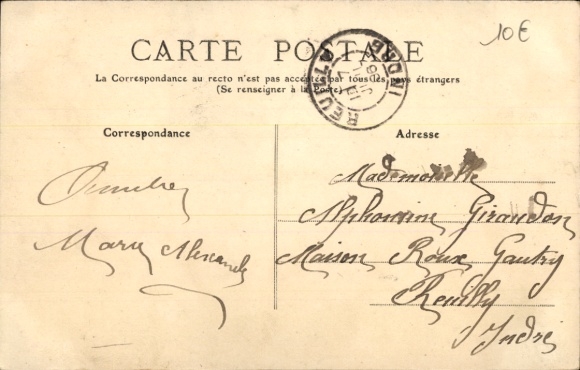 10€
CARTE POSTALE
La Correspondance au recto n'est pas acceptée par tous les pays étrangers
(Se renseigner à la Poste)
REUILLY
INDRE
Correspondance
Adresse
Mademoiselle
Alphonsine Giraudon
Maison Roux Gautry
Reuilly
Indre
Marie